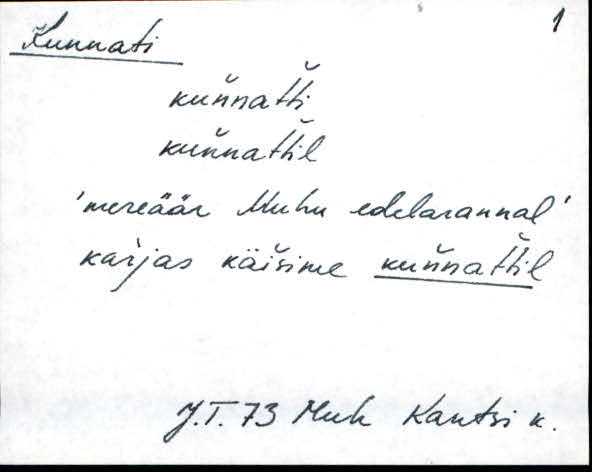 1
Kunnati
kuňnaťti
kuňnaťtil
'mereäär Muhu edelarannal'
kařjas käišime kuňnaťtil
J.T. 73 Muh Kantsi k.